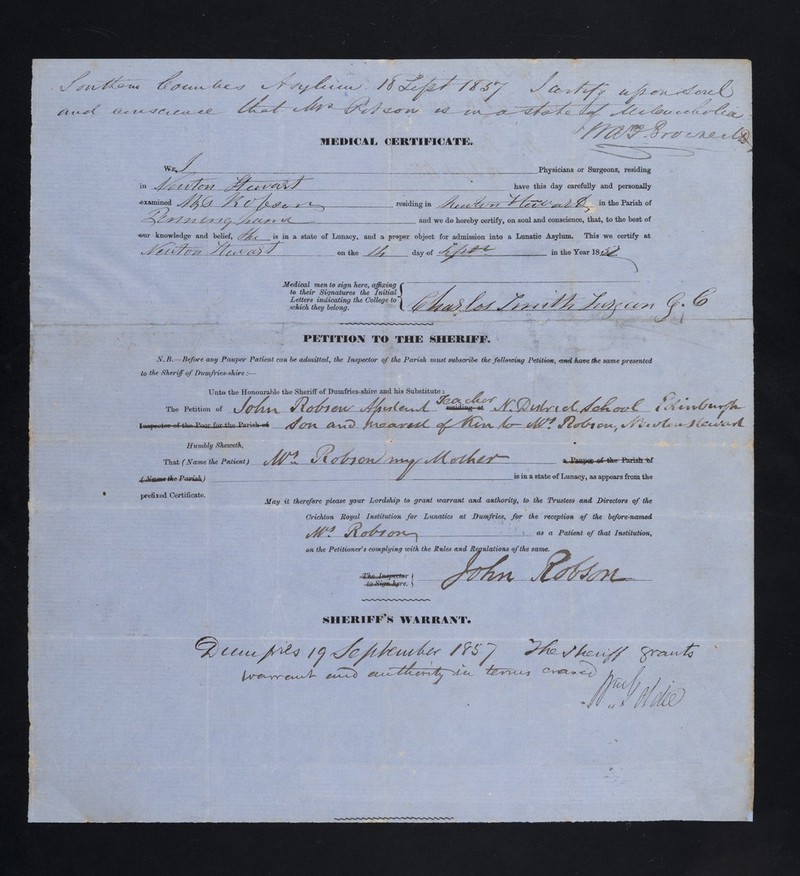 Southern Counties Asylum 18 Sept 1857 I certify upon soul
and conscience that Mrs Robson is in a state of Melancholia
MEDICAL CERTIFICATE.
We, I Physicians or Surgeons, residing
in Newton Stewart have this day carefully and personally
examined Mrs Robson residing in Newton Stewart, in the Parish of
Penninghame and we do hereby certify, on soul and conscience, that, to the best of
our knowledge and belief, She is in a state of Lunacy, and a proper object for admission into a Lunatic Asylum. This we certify at
Newton Stewart on the day of Sept in the Year 18
Medical men to sign here, affixing
to their Signatures the Initial
Letters indicating the College to
which they belong.
Charles Smith Surgeon G. C
PETITION TO THE SHERIFF.
N.B.—Before any Pauper Patient can be admitted, the Inspector of the Parish must subscribe the following Petition, and have the same presented
to the Sheriff of Dumfries-shire :—
Unto the Honourable the Sheriff of Dumfries-shire and his Substitute;
The Petition of John Robson Assistant Teacher residing at N. District School Edinburgh
Inspector of the Poor for the Parish of Son and nearest of Kin to Mrs Robson, Newton Stewart
Humbly Sheweth,
That (Name the Patient) Mrs Robson my Mother a Pauper of the Parish of
(Name the Parish) is in a state of Lunacy, as appears from the
prefixed Certificate.
May it therefore please your Lordship to grant warrant and authority, to the Trustees and Directors of the
Crichton Royal Institution for Lunatics at Dumfries, for the reception of the before-named
Mrs Robson as a Patient of that Institution,
on the Petitioner's complying with the Rules and Regulations of the same.
The Inspector
to Sign here.
John Robson
SHERIFF'S WARRANT.
Dumfries 19 September 1857 The Sheriff grants
warrant and authority in terms craved